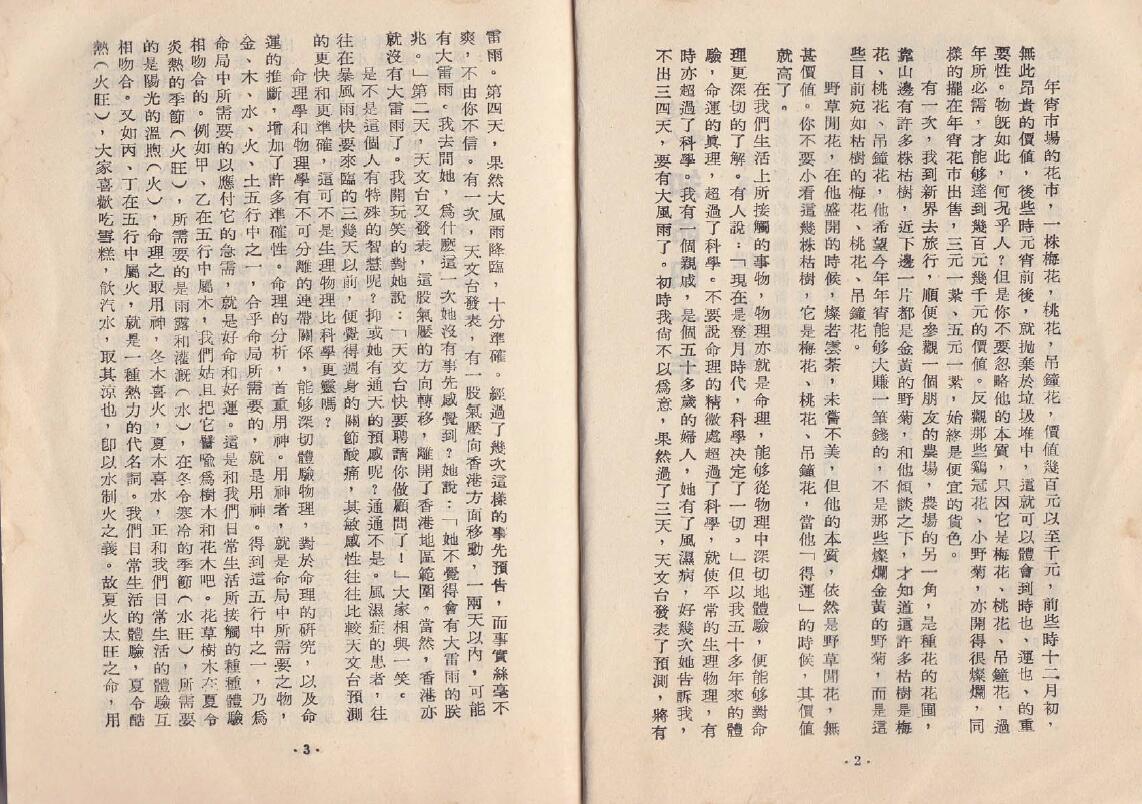 年宵市場的花市，一株梅花，桃花，吊鐘花，價值幾百元以至千元，前些時十二月初，
無此昂貴的價值，後些時元宵前後，就拋棄於垃圾堆中，這就可以體會到時也、運也、的重
要性。物旣如此，何况乎人？但是你不要忽略他的本質，只因它是梅花、桃花、吊鐘花，過
年所必需，才能够達到幾百元幾千元的價值。反觀那些鷄冠花、小野菊，亦開得很燦爛，同
樣的擺在年宵花市出售，三元一紮、五元一紮，始終是便宜的貨色。
有一次，我到新界去旅行，順便參觀一個朋友的農場，農場的另一角，是種花的花圃，
靠山邊有許多株枯樹，近下邊一片都是金黃的野菊，和他傾談之下，才知道這許多枯樹是梅
花、桃花、吊鐘花，他希望今年年宵能够大賺一筆錢的，不是那些燦爛金黃的野菊，而是這
些目前宛如枯樹的梅花、桃花、吊鐘花。
野草閒花，在他盛開的時候，燦若雲荼，未嘗不美，但他的本質，依然是野草閒花，無
甚價值。你不要小看這幾株枯樹，它是梅花、桃花、吊鐘花，當他「得運」的時候，其價值
就高了。
在我們生活上所接觸的事物，物理亦就是命理，能够從物理中深切地體驗，便能够對命
理更深切的了解。有人說：「現在是登月時代，科學決定了一切。」但以我五十多年來的體
驗，命運的眞理，超過了科學。不要說命理的精微處超過了科學，就使平常的生理物理，有
時亦超過了科學。我有一個親戚，是個五十多歲的婦人，她有了風濕病，好幾次她告訴我，
不出三四天，要有大風雨了。初時我尙不以爲意，果然過了三天，天文台發表了預測，將有
・2・
雷雨。第四天，果然大風雨降臨，十分準確。經過了幾次這樣的事先預告，而事實絲毫不
爽，不由你不信。有一次，天文台發表，有一股氣壓向香港方面移動，一兩天以內，可能
有大雷雨。我去問她，爲什麽這一次她沒有事先感覺到？她說：「她不覺得會有大雷雨的朕
兆。」第二天，天文台又發表，這股氣壓的方向轉移，離開了香港地區範圍。當然，香港亦
就沒有大雷雨了。我開玩笑的對她說：「天文台快要聘請你做顧問了！」大家相與一笑。
是不是這個人有特殊的智慧呢？抑或她有通天的預感呢？通通不是。風濕症的患者，往
往在暴風雨快要來臨的三幾天以前，便覺得週身的關節酸痛，其敏感性往往比較天文台預測
的更快和更準確，這可不是生理物理比科學更靈嗎？
命理學和物理學有不可分離的連帶關係，能够深切體驗物理，對於命理的硏究，以及命
運的推斷，增加了許多準確性。命理的分析，首重用神。用神者，就是命局中所需要之物，
金、木、水、火、土五行中之一，合乎命局所需要的，就是用神。得到這五行中之一，乃爲
命局中所需要的以應付它的急需，就是好命和好運。這是和我們日常生活所接觸的種種體驗
相吻合的。例如甲、乙在五行中屬木，我們姑且把它譬喩爲樹木和花木吧。花草樹木在夏令
炎熱的季節（火旺），所需要的是雨露和灌漑（水），在冬令寒冷的季節（水旺），所需要
的是陽光的溫煦（火），命理之取用神，冬木喜火，夏木喜水，正和我們日常生活的體驗互
相吻合。又如丙、丁在五行中屬火，就是一種熱力的代名詞。我們日常生活的體驗，夏令酷
熱（火旺），大家喜歡吃雪糕，飮汽水，取其涼也，卽以水制火之義。故夏火太旺之命，用
・3・